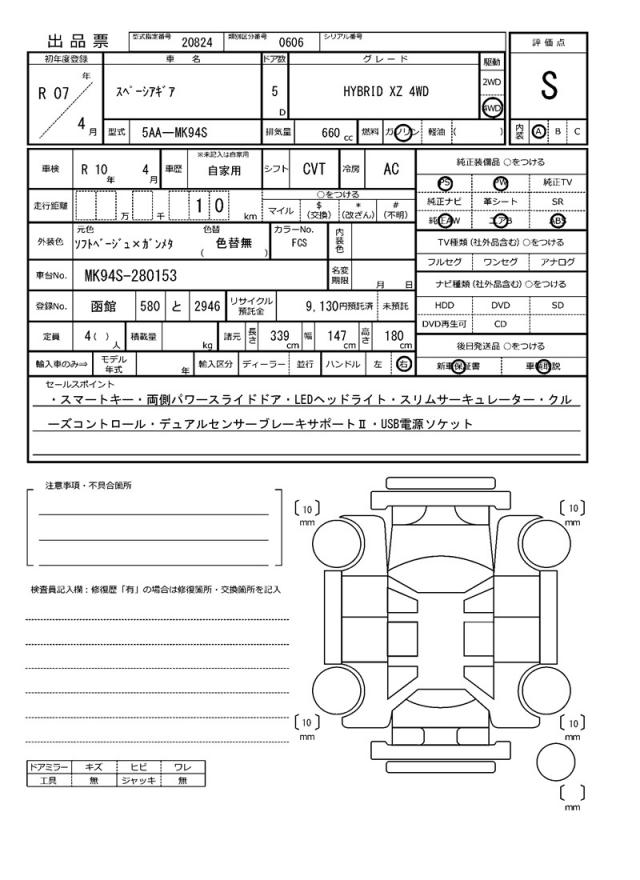 出品票 型式指定番号 20824 類別区分番号 0606 シリアル番号
評価点
S
初年度登録 車名 ドア数 グレード 駆動
R 07 年 4 月 ｽﾍﾟｰｼｱｷﾞｱ 5 D HYBRID XZ 4WD 2WD 4WD
型式 5AA-MK94S 排気量 660 cc 燃料 ガソリン 軽油 ( )
内装 A B C
車検 R 10 年 4 月 車歴 ※未記入は自家用 自家用 シフト CVT 冷房 AC
走行距離 万 千 1 0 km
○をつける
マイル $ (交換) * (改ざん) # (不明)
外装色 元色 ｿﾌﾄﾍﾞｰｼﾞｭ×ｶﾞﾝﾒﾀ 色替 ( 色替無 ) カラーNo. FCS 内装色
車台No. MK94S-280153 名変期限 月 日
登録No. 函館 580 と 2946 リサイクル預託金 9,130円預託済 未預託
定員 4( ) 人 積載量 kg 諸元 長さ 339 cm 幅 147 cm 高さ 180 cm
輸入車のみ⇒ モデル年式 年 輸入区分 ディーラー 並行 ハンドル 左 右
純正装備品 ○をつける
PS PW 純正TV
純正ナビ 革シート SR
純正AW エアB ABS
TV種類 (社外品含む) ○をつける
フルセグ ワンセグ アナログ
ナビ種類 (社外品含む) ○をつける
HDD DVD SD
DVD再生可 CD
後日発送品 ○をつける
新車保証書 車輌取説
セールスポイント
・スマートキー・両側パワースライドドア・LEDヘッドライト・スリムサーキュレーター・クル
ーズコントロール・デュアルセンサーブレーキサポートⅡ・USB電源ソケット
注意事項・不具合箇所
検査員記入欄：修復歴「有」の場合は修復箇所・交換箇所を記入
[10] mm [10] mm
[10] mm [10] mm
[ ] mm
ドアミラー キズ ヒビ ワレ
工具 無 ジャッキ 無